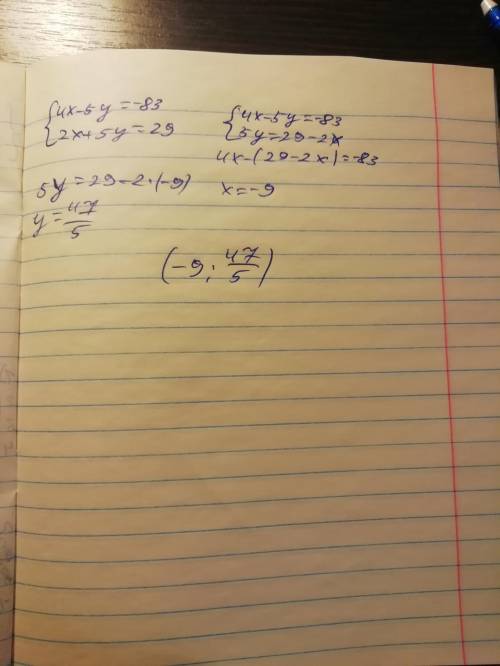 {4x-5y=-83
{2x+5y=29
{4x-5y=-83
{5y=29-2x
4x-(29-2x)=-83
x=-9
5y=29-2·(-9)
y=47/5
(-9; 47/5)